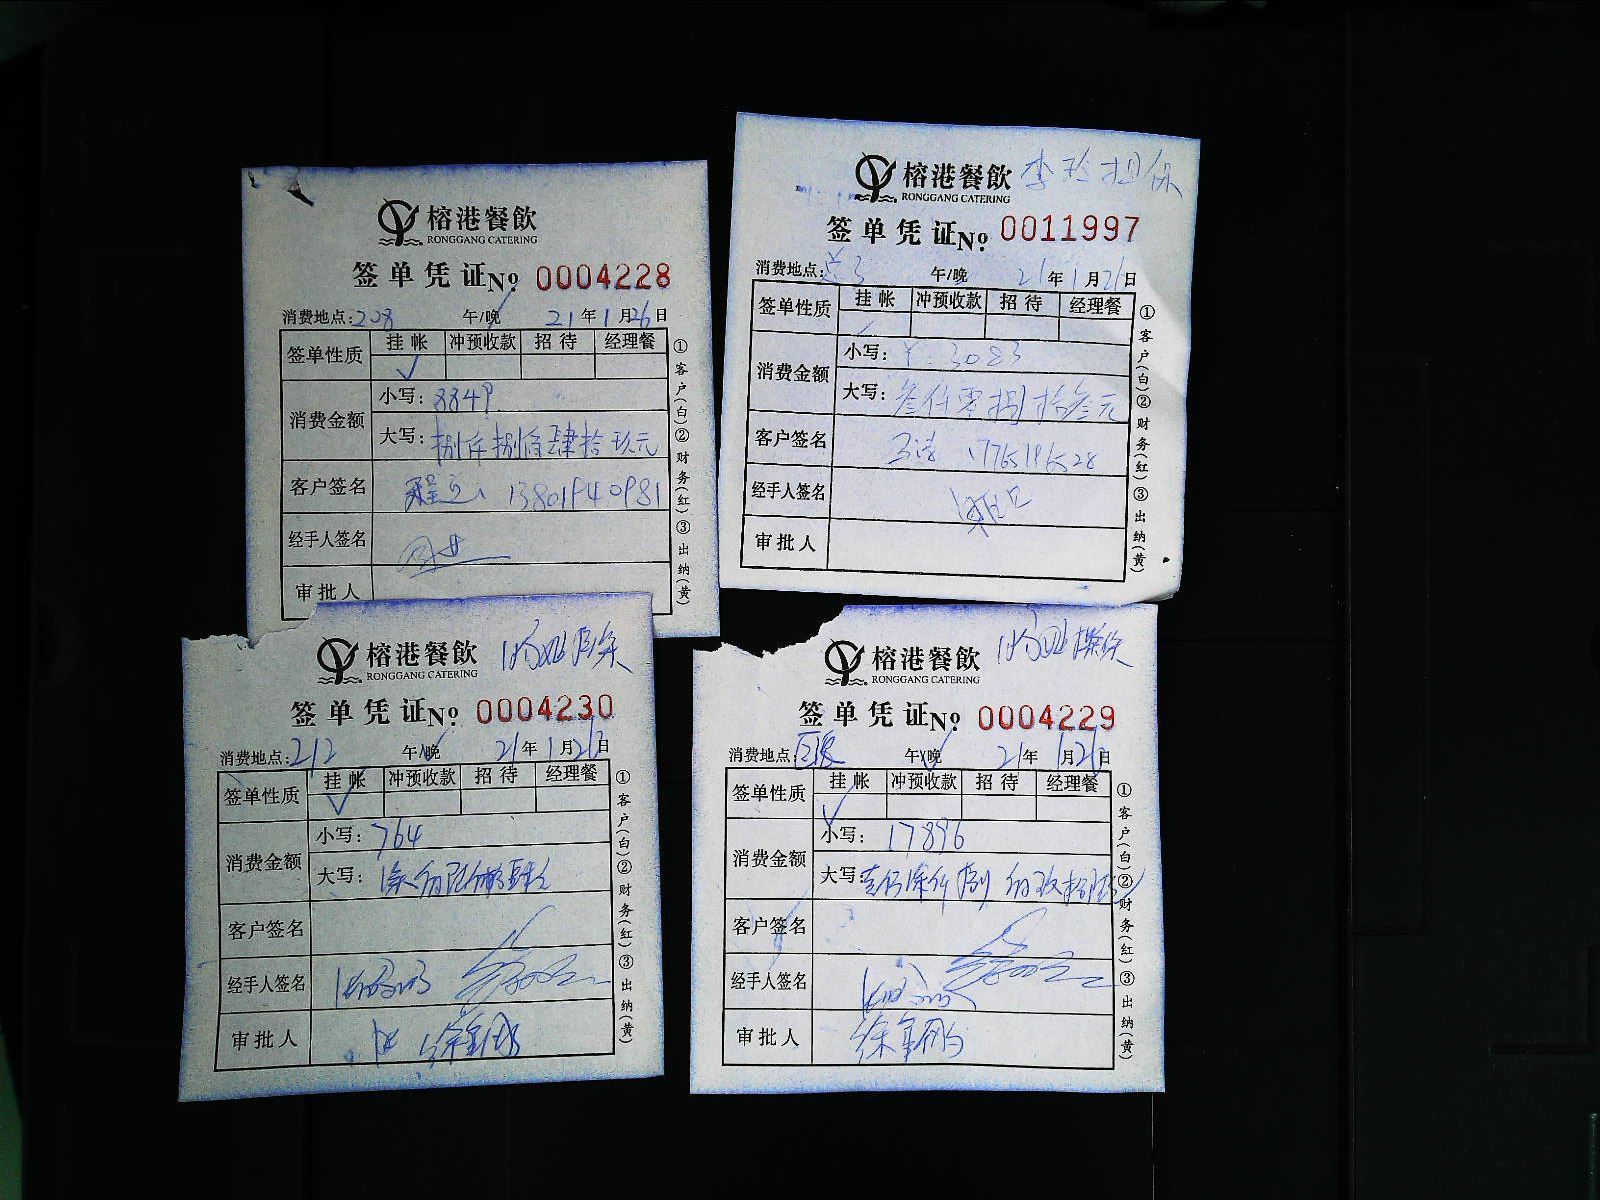 榕港餐飲
RONGGANG CATERING
签单凭证No 0004228
消费地点:208 午/晚 21年1月26日
签单性质 挂帐 冲预收款 招待 经理餐
消费金额 小写:8849
大写:捌仟捌佰肆拾玖元
客户签名 13801940981
经手人签名
审批人
①客户(白)②财务(红)③出纳(黄)
榕港餐飲 李玲担保
RONGGANG CATERING
签单凭证No 0011997
消费地点: 午/晚 21年1月26日
签单性质 挂帐 冲预收款 招待 经理餐
消费金额 小写:¥:3083
大写:叁仟零捌拾叁元
客户签名 17765196528
经手人签名
审批人
①客户(白)②财务(红)③出纳(黄)
榕港餐飲
RONGGANG CATERING
签单凭证No 0004230
消费地点:212 午/晚 21年1月26日
签单性质 挂帐 冲预收款 招待 经理餐
消费金额 小写:764
大写:
客户签名
经手人签名
审批人
①客户(白)②财务(红)③出纳(黄)
榕港餐飲
RONGGANG CATERING
签单凭证No 0004229
消费地点: 午/晚 21年1月26日
签单性质 挂帐 冲预收款 招待 经理餐
消费金额 小写:17896
大写:
客户签名
经手人签名
审批人
①客户(白)②财务(红)③出纳(黄)